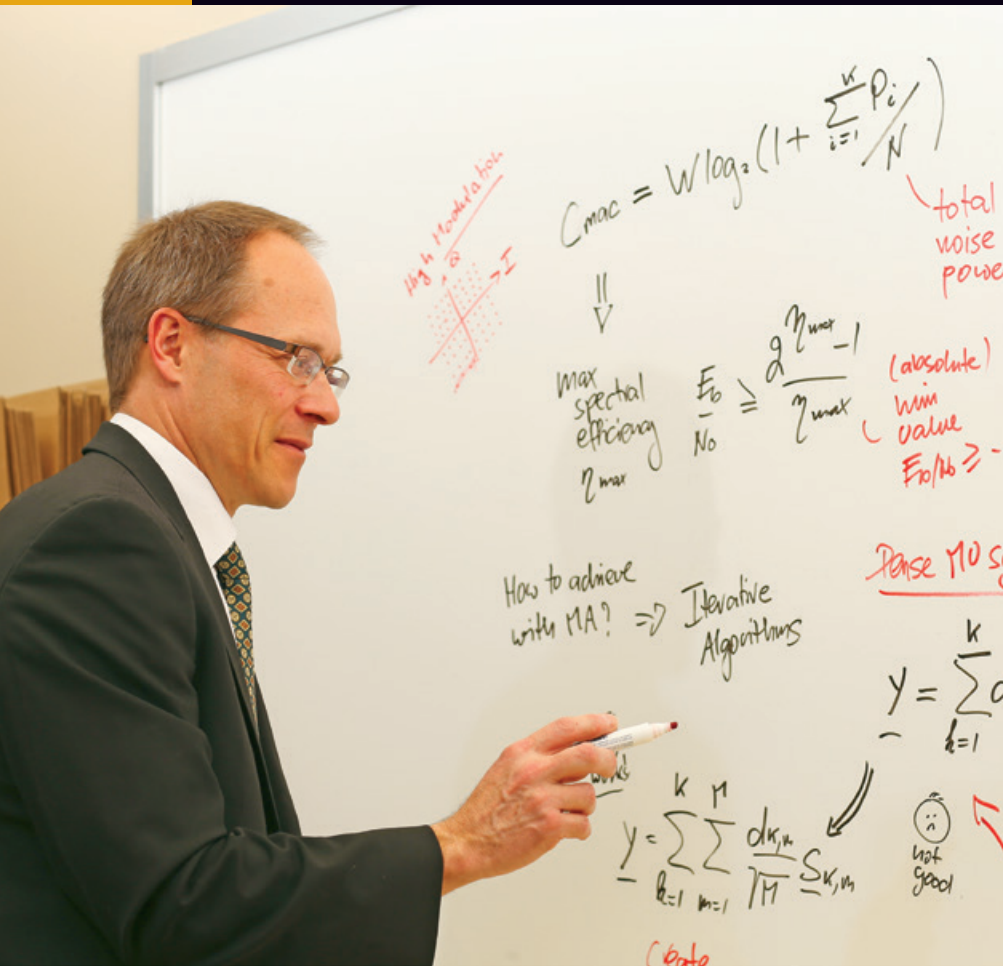 High Modulation
Q
I
Cmac = W log₂(1 + ∑_{i=1}^{K} Pi/N)
total
noise
power
⇓
max
spectral
efficiency
η max
Eb/No ≥ (2^{ηmax} - 1)/ηmax
(absolute)
min
value
Eb/No ≥ -
How to achieve
with MA? ⇒ Iterative
Algorithms
Dense MU
y = ∑_{k=1}^{K} d
y = ∑_{k=1}^{K} ∑_{m=1}^{M} d_{k,m}/√M S_{k,m}
not
good
Create